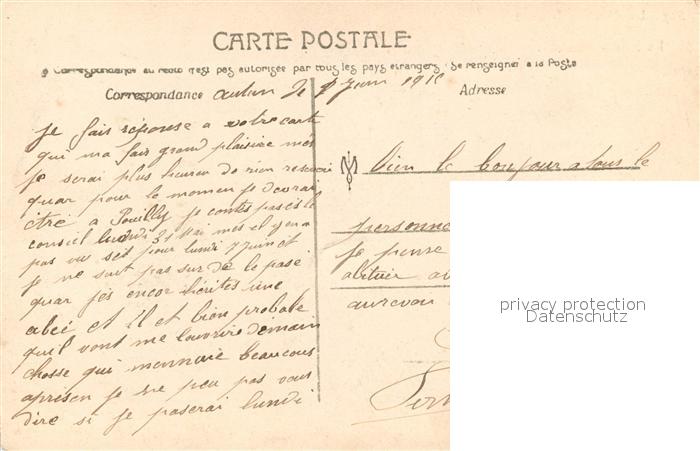 CARTE POSTALE
Correspondance au recto n'est pas autorisée par tous les pays étrangers (Se renseigner à la Poste
Correspondance
Adresse
autun le Juin
Je fais réponse a votre carte
qui ma fait grand plaisire mes
je serai plus heureu de rien recevoir
quar pour le momen je devrai
être a Pouilly je contes passé le
conseil lundi 31 Mai mes il y en a
pas eu ses pour lundi 7 Juin et
je ne suit pas sur de le pasé
quar jés encor une
abcé et il et bien probable
quil vont me demain
chosse qui mennuie beaucous
aprisen je ne peu pas vous
dire si je paserai lundi
Bien le bonjour a tous le
personne
je pense
aurevoir
privacy protection
Datenschutz